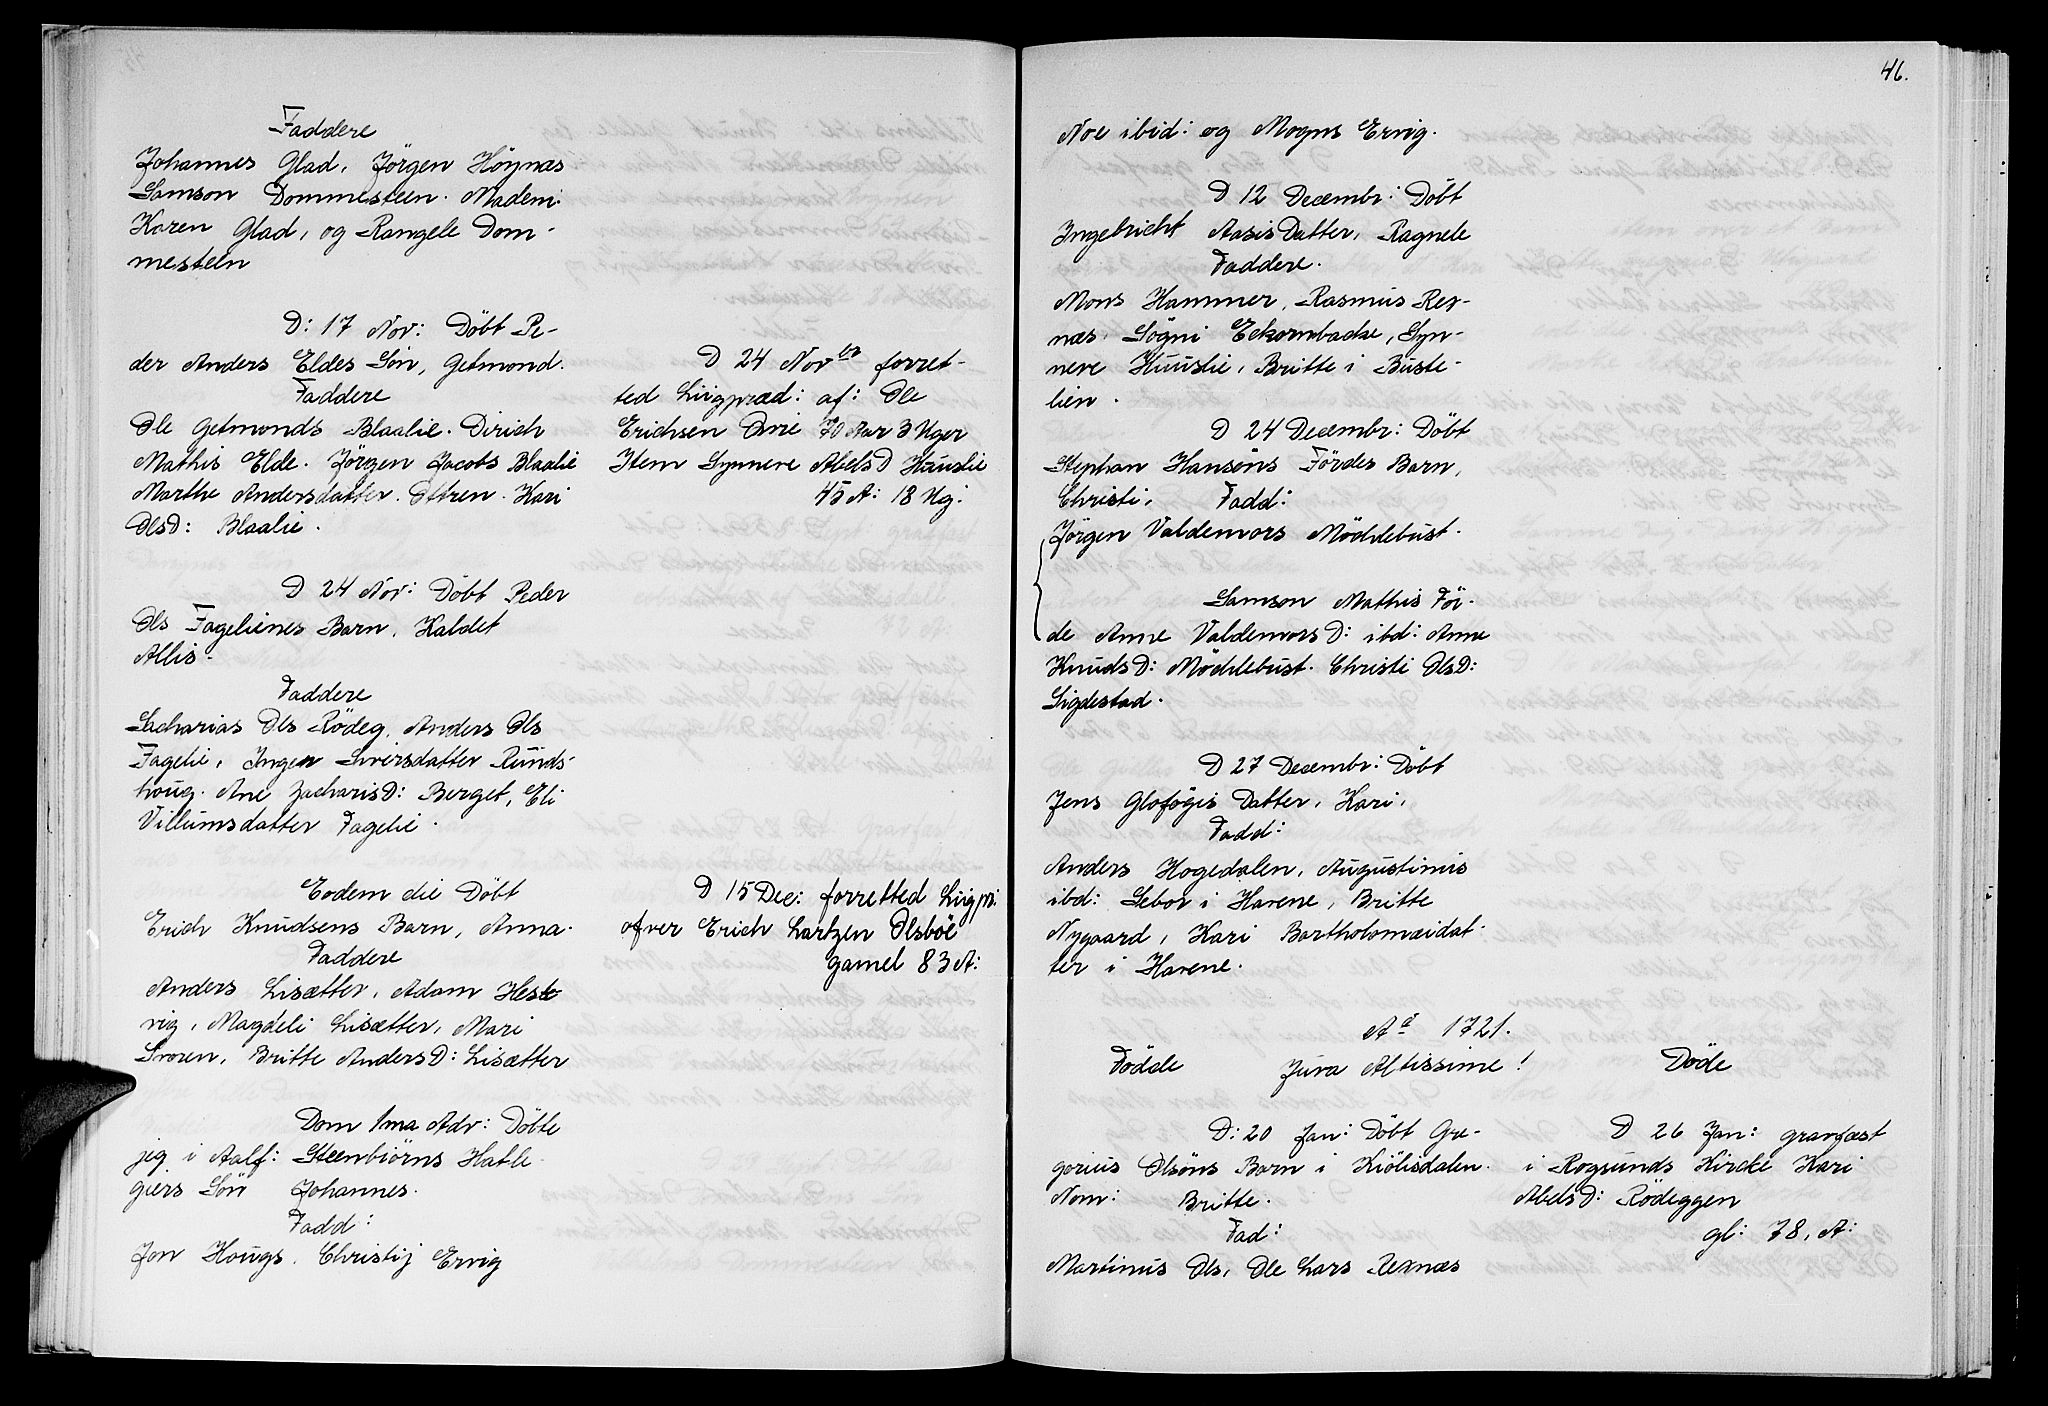 Faddere
Johannes Glad, Jörgen Höynæs
Samson Dommesteen. Madem:
Karen Glad, og Rangele Dom-
mesteen
D: 17 Nov: Döbt Pe-
der Anders Eldes Sön, Getmond.
Faddere
Ole Getmonds Blaalie. Dirich
Mathis Elde. Jörgen Jacobs Blaalie
Marthe Andersdatter. Ottren. Kari
OlsD: Blaalie.
D 24 Nov: Döbt Peder
Ols Fagelienes Barn, Kaldet
Allis.
Faddere
Sacharias Ols Rödeg. Anders Ols
Fagelie, Inger Siversdatter Runds-
houg. Ane ZacharisD: Berget, Eli
Villumsdatter Fagelie.
Eodem die Döbt
Erich Knudsens Barn, Anna.
Faddere
Anders Lisætter, Adam Heste-
vig, Magdeli Lisætter, Mari
Svoren, Britte AndersD: Lisætter
Dom 1ma Adv: Döbte
jeg i Aalf: Steenbiørns Hatle-
giers Sön Johannes.
Fadd:
Jon Hougs. Christij Ervig
D 24 Novbr forret-
ted Liigpræd: af: Ole
Erichsen Ørie 70 Aar 3 Uger
Item Synnere AbelsD Huuslie
45 A: 18 Ug:
D 15 Dec: forretted Liigpr:
ofver Erich Lartzen Olsböe
gamel 83 A:
46.
Noe ibid: og Mogns Ervig.
D 12 Decembr: Döbt
Ingebricht Aasis Datter, Ragnele
Faddere.
Mons Hammer, Rasmus Rex-
næs. Sögni Eckornbacke, Syn-
nere Huuslie, Britte i Buste-
lien.
D 24 Decembr: Döbt
Stephan Hansöns Fördes Barn,
Christi, Fadd:
Jörgen Valdemors Möcklebust.
Samson Mathis För-
de Anne ValdemorsD: ibd: Anne
KnudsD: Möcklebust. Christi OlsD:
Sigdestad.
D 27 Decembr: Döbt
Jens Gloføgis Datter, Kari,
Fadd:
Anders Hogedalen, Augustinus
ibd: Sebor i Havene, Britte
Nygaard, Kari Bartholomæidat-
ter i Havene.
Ao 1721.
Födde Jura Altissime! Döde
D: 20 Jan: Döbt Gre-
gorius Olsöns Barn i Kiölisdalen.
Nom: Britte.
Fad:
Martinus Ols, Ole Lars Rexnæs
D 26 Jan: gravfæst
i Rogsunds Kircke Kari
AbelsD: Rödeggen
gl: 78, A: